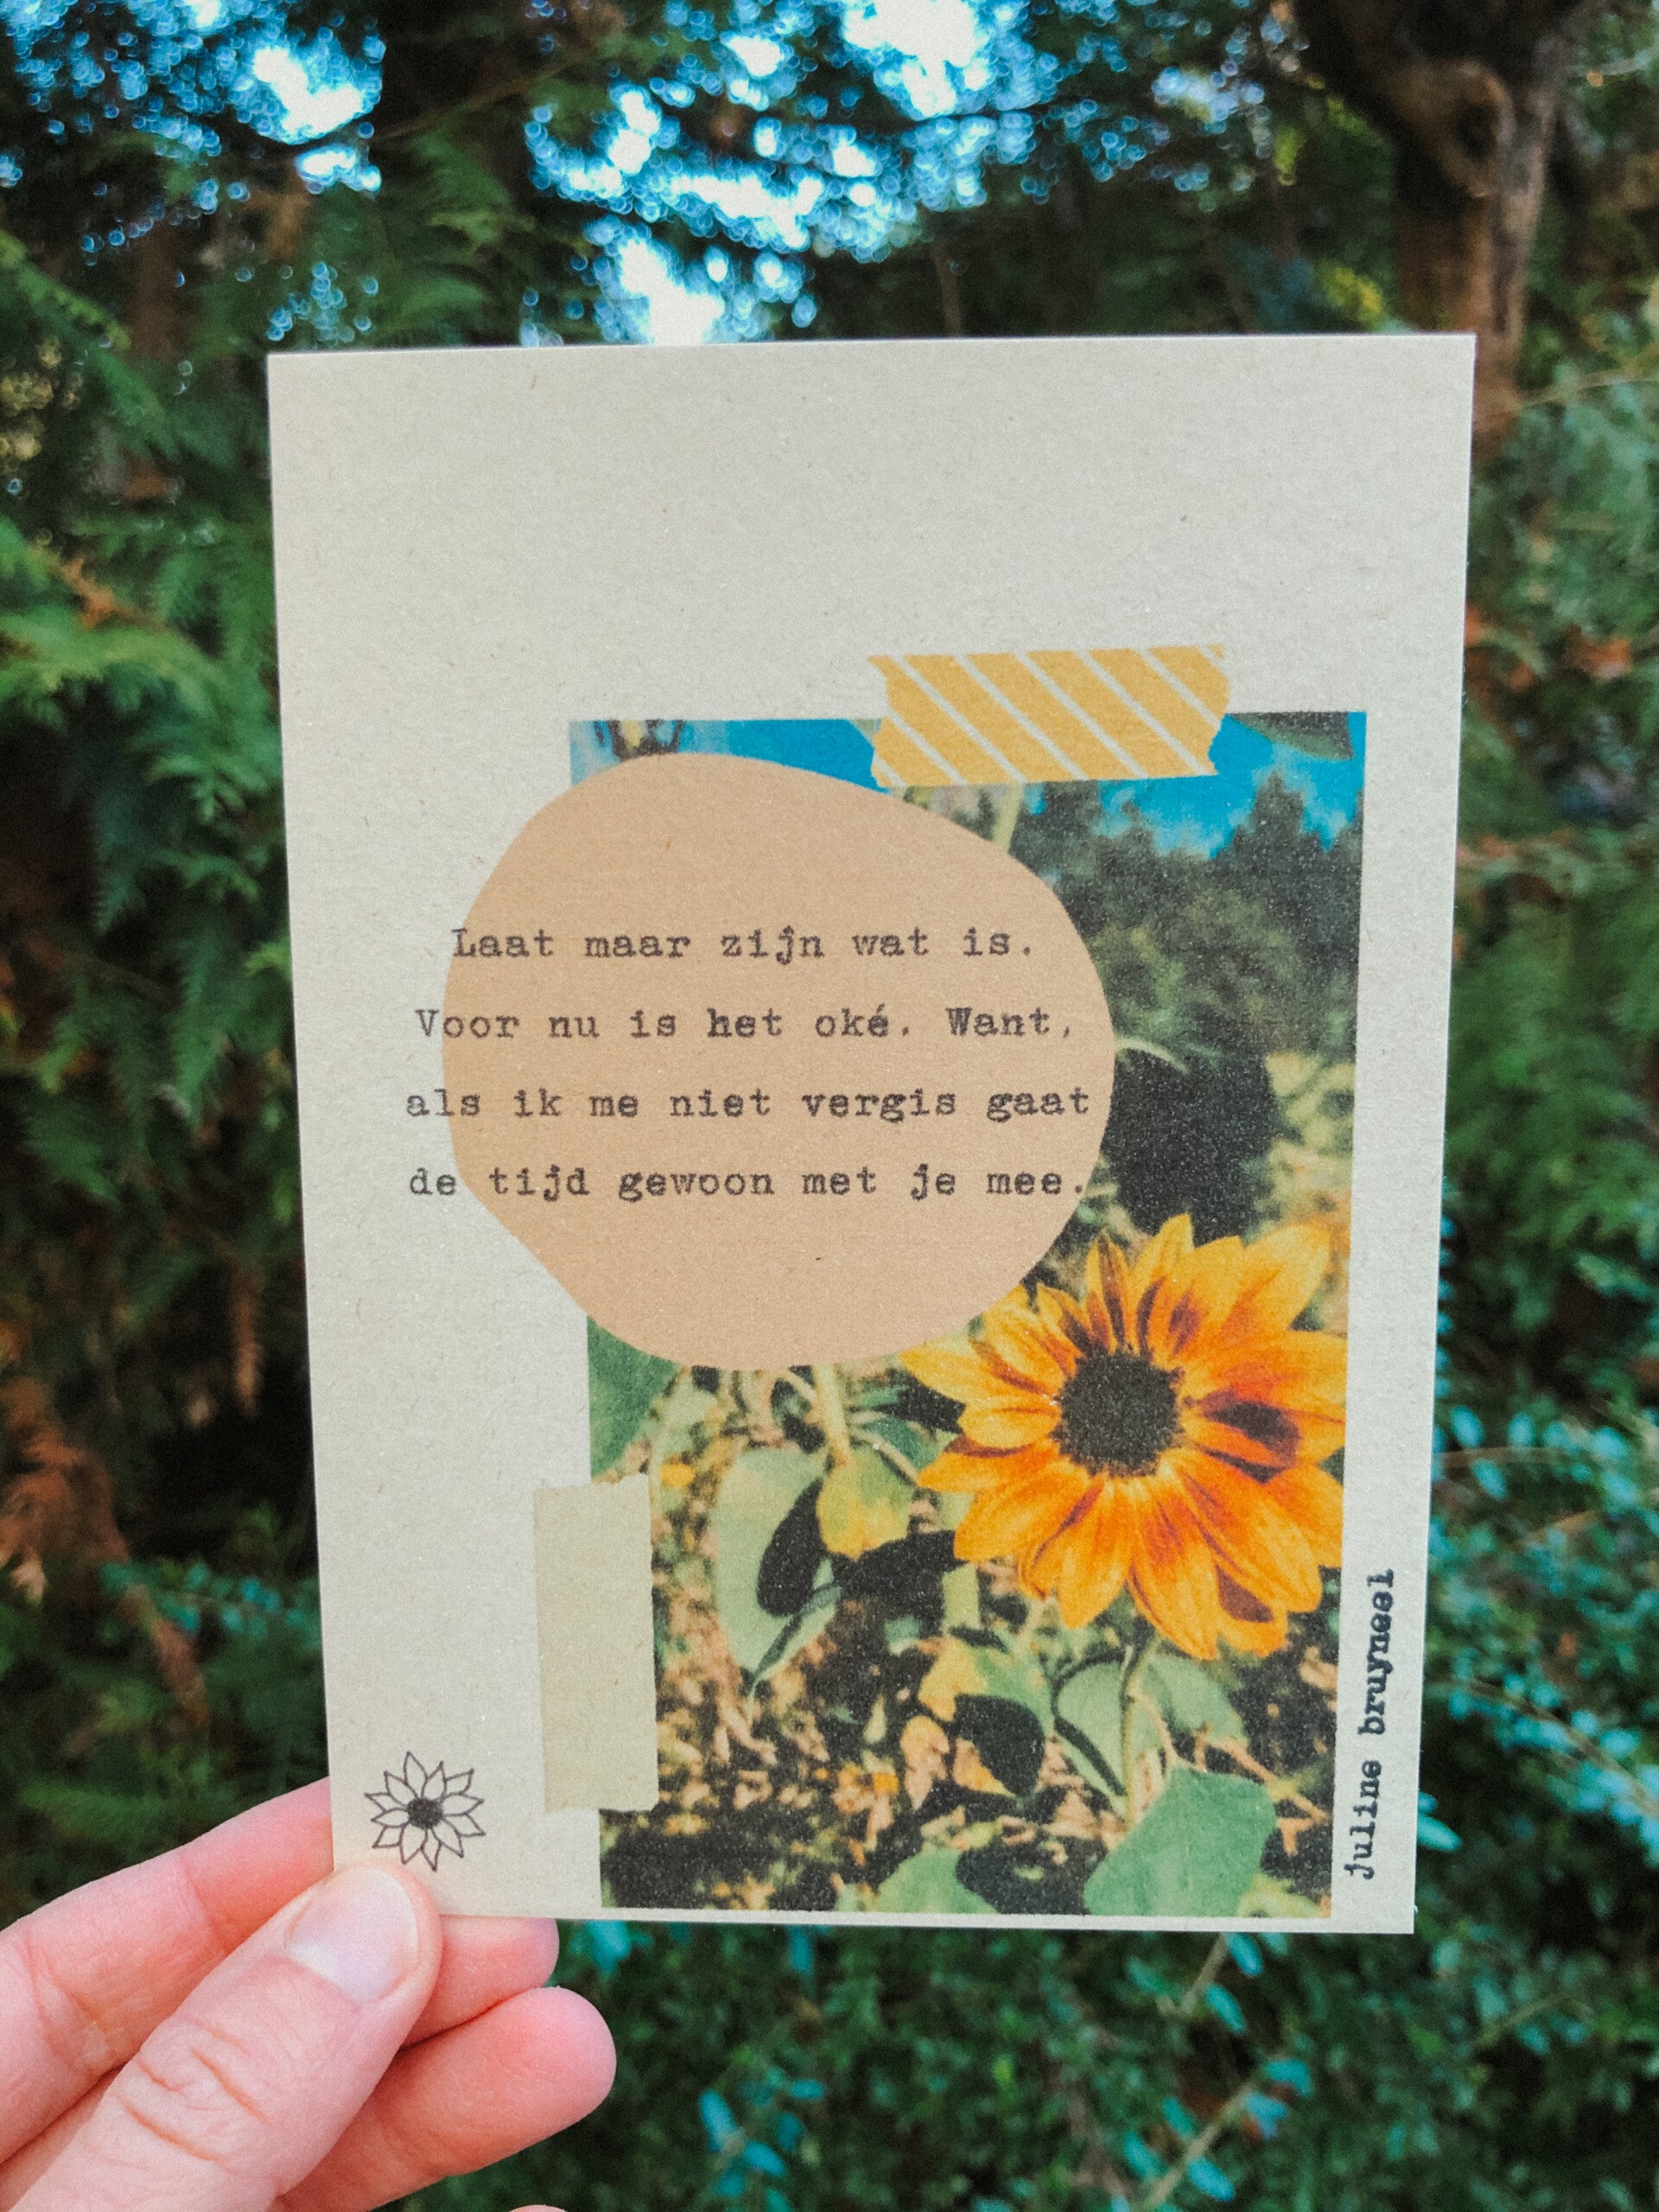 Laat maar zijn wat is.
Voor nu is het oké. Want,
als ik me niet vergis gaat
de tijd gewoon met je mee.
juline bruyneel